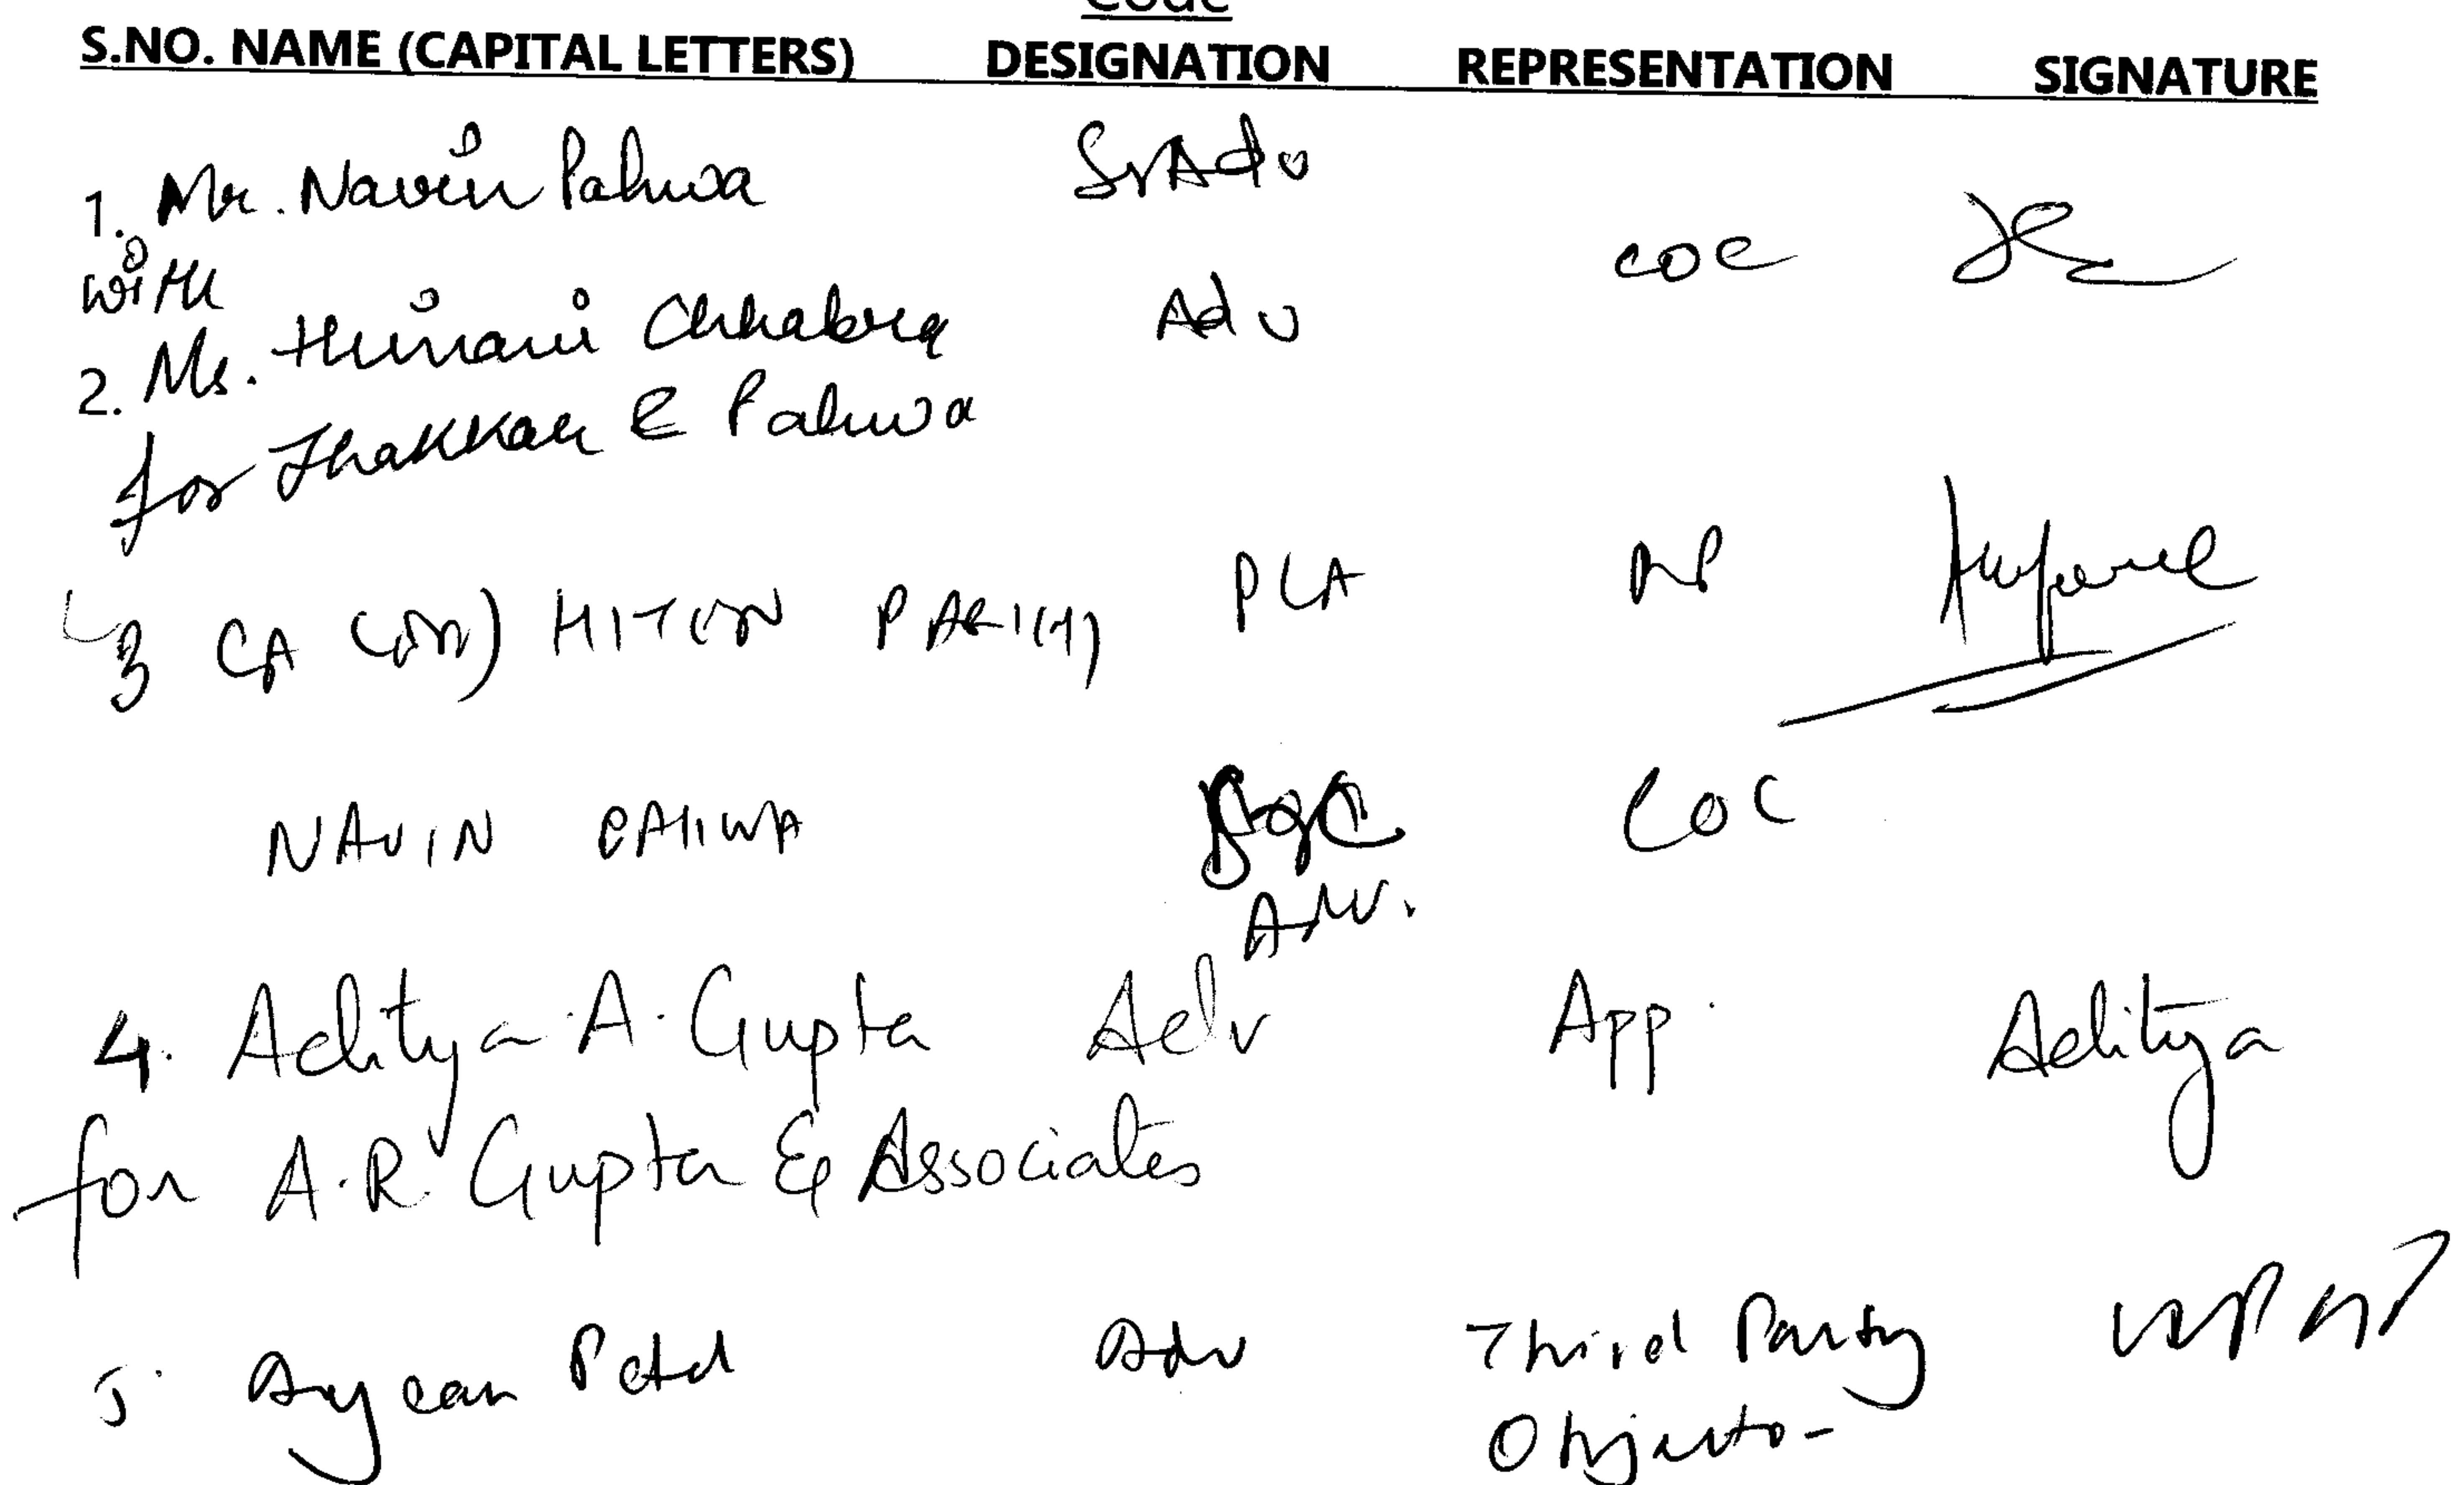 Code
S.NO. NAME (CAPITAL LETTERS) DESIGNATION REPRESENTATION SIGNATURE
1. Mr. Navin Pahwa Sr Adv
with COC
2. Ms. Himani Chhabra Adv
for Thakkar & Pahwa
3 CA PARIKH PCA RP
NAVIN PAHWA COC
Adv.
4. Aditya A. Gupta Adv App. Aditya
for A.R. Gupta & Associates
5. Patel Adv Third Party
Objector